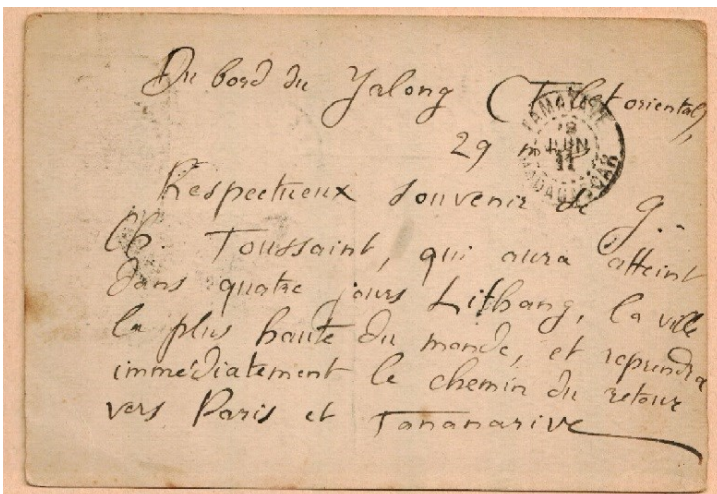 Du bord du Yalong (Tibet oriental),
29 m
TAMATAVE
JUIN
11
MADAGASCAR
Respectueux souvenir de G..
Ch. Toussaint, qui aura atteint
dans quatre jours Lithang, la ville
la plus haute du monde, et reprendra
immédiatement le chemin du retour
vers Paris et Tananarive